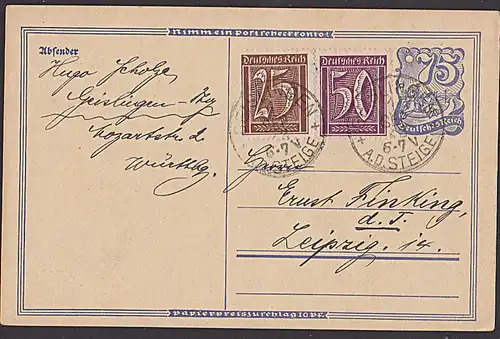 Nimm ein Postscheckkonto!
Absender
Hugo Scholze,
Geislingen-Stg
Mozartstr 2
Württbg.
Deutsches Reich
25
Deutsches Reich
50
75
Deutsches Reich
6-7 V
A.D. STEIGE
6-7 V
A.D. STEIGE
Herrn
Ernst Finking,
d. J.
Leipzig. 14.
Papierpreiszuschlag 10 Pf.